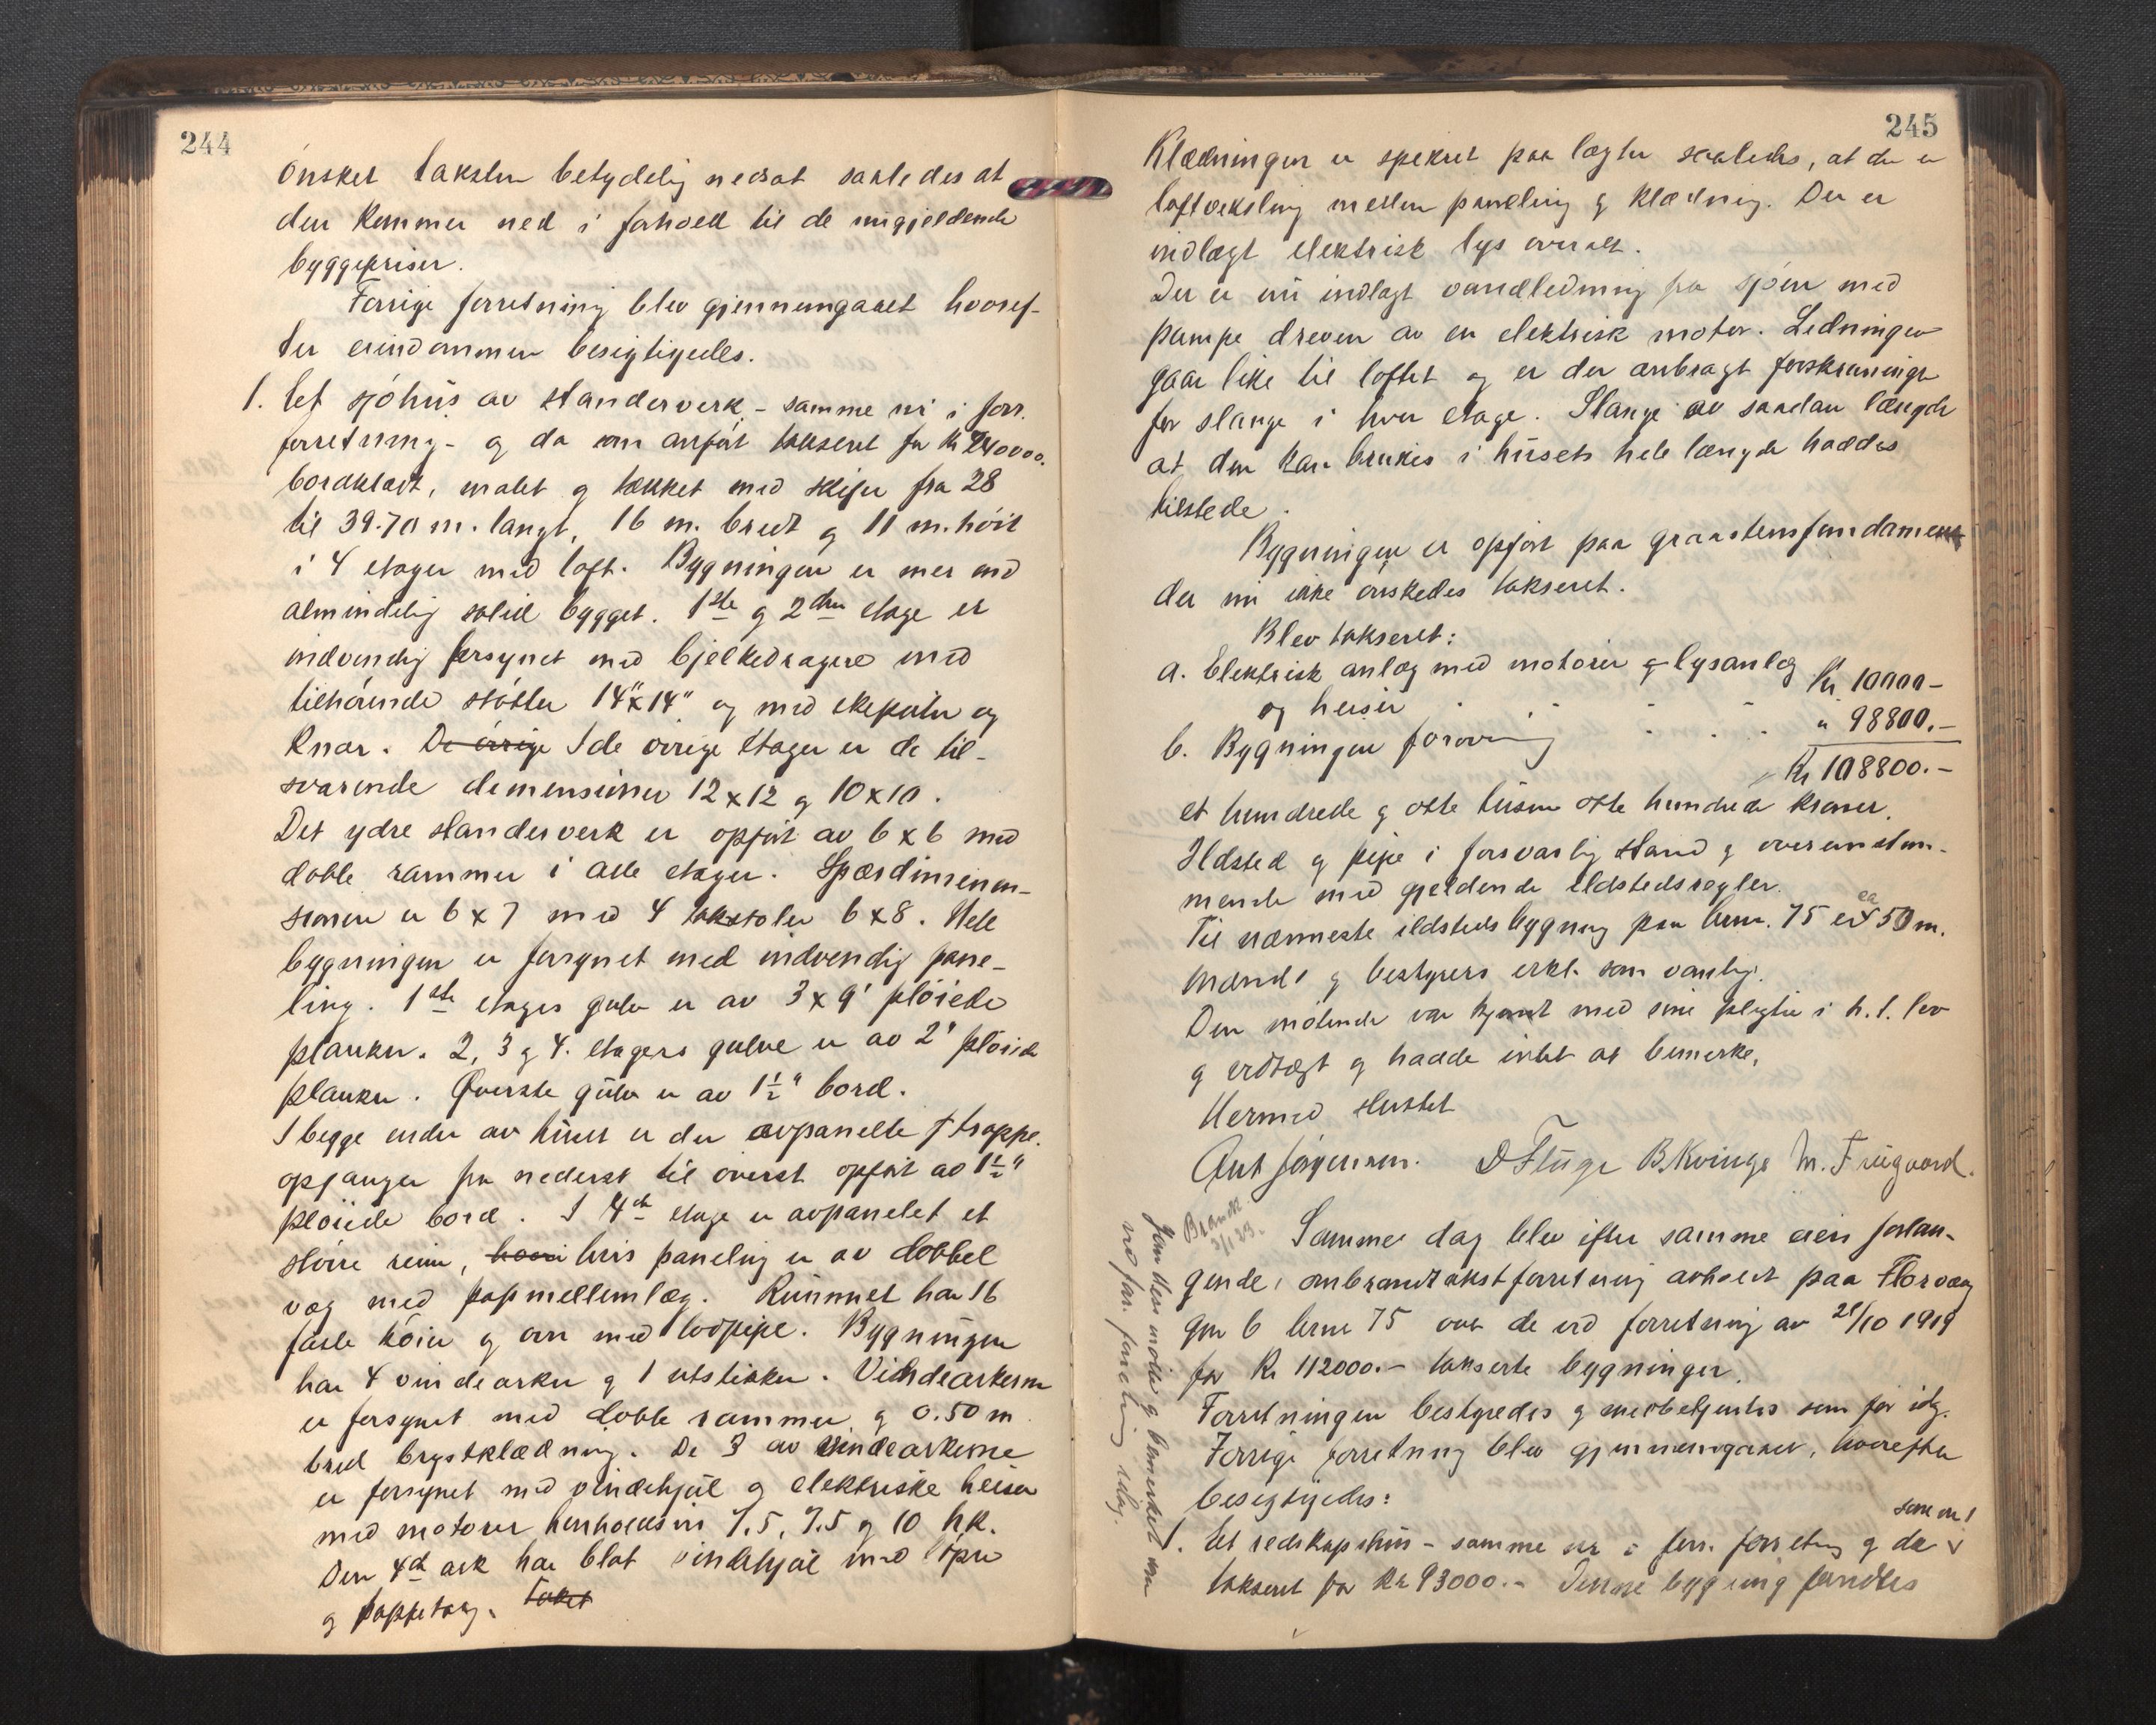 244
ónsket taksten betydelig nedsat saaledes at
den kommer ned i forhold til de nugjeldende
byggepriser.
Forrige forretning blev gjennemgaaet hvoref-
ter eiendommen besigtigedes.
1. Et sjóhus av standerverk - samme nr i forr.
forretning - og da som anfört takseret for kr 240000.
bordklædt, malet og tækket med skifer fra 28
til 39.70 m. langt, 16 m. bredt og 11 m. höit
i 4 etager med loft. Bygningen er mer end
almindelig solid bygget. 1ste og 2den etage er
indvendig forsynet med bjelkedragere med
tilhörende stötter 14"x14" og med skepeiler og
knær. De örrige I de övrige etager er de til-
svarende demensioner 12x12 og 10x10.
Det ydre standerverk er opfört av 6x6 med
doble rammer i alle etager. Spærdimenen-
sionen er 6x7 med 4 takstoler 6x8. Hele
bygningen er forsynet med indvendig pane-
ling. 1ste etages gulv er av 3x9' plöiede
planker. 2, 3 og 4. etagers gulve er av 2' plöiede
planker. Överste gulv er av 1½" bord.
I begge ender av huset er der avpanelte trappe-
opganger fra nederst til överst opfört av 1½"
plöiede bord. I 4de etage er avpanelet et
större rum, hvori hvis paneling er av dobbel
væg med papmellemlæg. Rummet har 16
faste köier og ovn med pipe. Bygningen
har 4 vindearker og 1 utstikker. Vindearkerne
er forsynet med doble rammer og 0.50 m
bred brystklædning. De 3 av vindearkerne
er forsynet med vindehjul og elektriske heiser
med motorer henholdsvis 7.5, 7.5 og 10 hk.
Den 4de ark har blot vindehjul med löper
og toppetaug. Taket
245
Klædningen er spekret paa lægter saaledes, at der er
luftveksling mellem paneling og klædning. Der er
indlagt elektrisk lys overalt.
Der er nu indlagt vandledning fra sjöen med
pumpe dreven av en elektrisk motor. Ledningen
gaar like til loftet og er der anbragt forskruninger
for slange i hver etage. Slange av saadan længde
at den kan brukes i husets hele længde haddes
tilstede.
Bygningen er opfört paa graastensfundament
der nu ikke önskedes takseret.
Blev takseret:
a. Elektrisk anlæg med motorer og lysanlæg
og heiser Kr 10000-
b. Bygningen forövrig " 98800.-
Kr 108800.-
et hundrede og otte tusen otte hundrede kroner.
Ildsted og pipe i forsvarlig stand og overensstem-
mende med gjeldende ildstedsregler.
Til nærmeste ildstedsbygning paa brnr. 75 er ca 50 m.
Mænd og bestyrers erkl. som vanlig.
Den mötende var kjendt med sine pligter i h. t. lov
og vedtægt og hadde intet at bemerke.
Hermed sluttet
Ant Jörgensen. D Fluge B. Kvinge M. Friisgaard.
Brandt.
3/1 23.
Jan Herr mötte og bemerket som
ved för. forretning idag.
Samme dag blev efter samme eiers forlan-
gende, ombrandtakstforretning avholdt paa Florvaag
gnr 6 brnr 75 over de ved forretning av 21/10 1919
for Kr 112000.- takserte bygninger.
Forretningen bestyredes og medbetjentes som för idg.
Forrige forretning blev gjennemgaaet, hvorefter
besigtigedes:
1. Et redskapshus - samme nr i forr. forretning og da som nr 1
takseret for Kr 93000.- Denne bygning fandtes